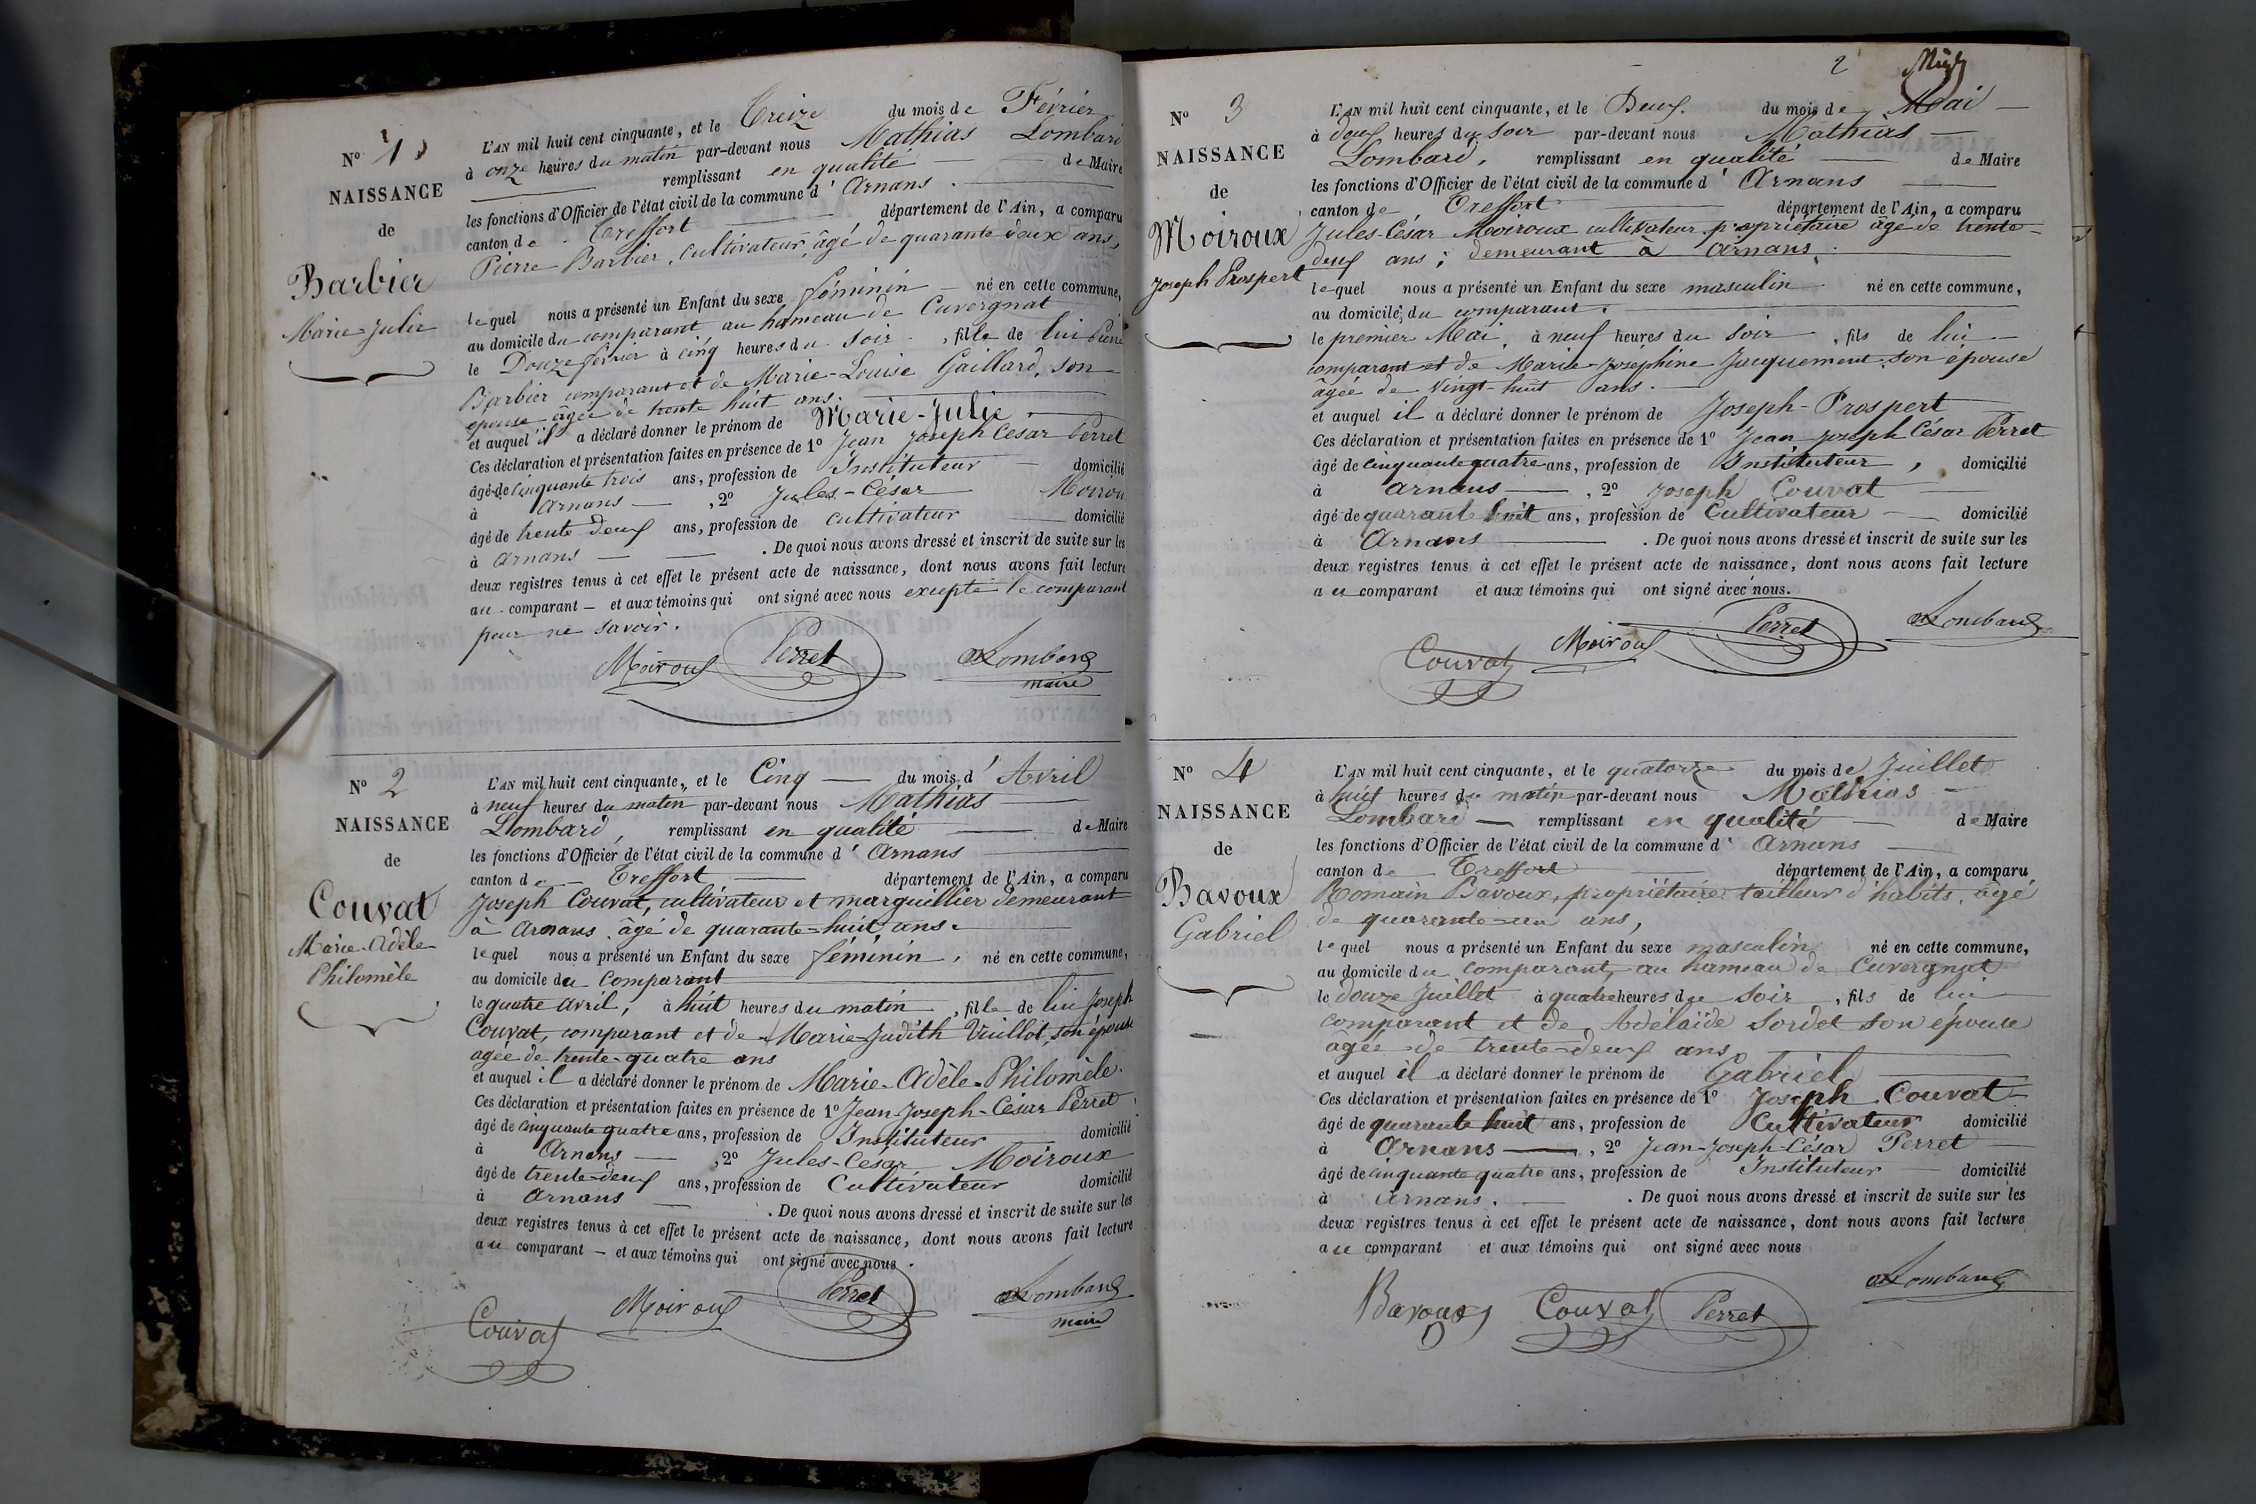 N° 1
NAISSANCE
de
Barbier
Marie-Julie
L'AN mil huit cent cinquante, et le Treize du mois de Février
à onze heures du matin par-devant nous Mathias Lombard
remplissant en qualité de Maire
les fonctions d'Officier de l'état civil de la commune d'Arnans.
canton de Treffort département de l'Ain, a comparu
Pierre Barbier, cultivateur, âgé de quarante deux ans,
lequel nous a présenté un Enfant du sexe féminin né en cette commune,
au domicile du comparant au hameau de Cuvergnat
le Douze février à cinq heures du soir, fille de lui Pierre
Barbier comparant et de Marie-Louise Gaillard, son
epouse âgée de trente huit ans.
et auquel il a déclaré donner le prénom de Marie-Julie
Ces déclaration et présentation faites en présence de 1° Jean Joseph César Perret
âgé de cinquante trois ans, profession de Instituteur domicilié
à Arnans, 2° Jules-César Moirou
âgé de trente deux ans, profession de cultivateur domicilié
à Arnans. De quoi nous avons dressé et inscrit de suite sur les
deux registres tenus à cet effet le présent acte de naissance, dont nous avons fait lecture
au comparant – et aux témoins qui ont signé avec nous excepté le comparant
pour ne savoir.
Moiroux Perret Lombard
maire
N° 2
NAISSANCE
de
Couvat
Marie-Adèle-
Philomèle
L'AN mil huit cent cinquante, et le Cinq du mois d'Avril
à neuf heures du matin par-devant nous Mathias
Lombard, remplissant en qualité de Maire
les fonctions d'Officier de l'état civil de la commune d'Arnans
canton de Treffort département de l'Ain, a comparu
Joseph Couvat, cultivateur et marguillier demeurant
à Arnans âgé de quarante-huit ans.
lequel nous a présenté un Enfant du sexe féminin, né en cette commune,
au domicile du comparant
le quatre avril, à huit heures du matin, fille de lui Joseph
Couvat, comparant et de Marie-Judith Vuillot, son épouse
agée de trente-quatre ans
et auquel il a déclaré donner le prénom de Marie-Adèle-Philomèle.
Ces déclaration et présentation faites en présence de 1° Jean-Joseph-César Perret
âgé de cinquante quatre ans, profession de Instituteur domicilié
à Arnans, 2° Jules-César Moiroux
âgé de trente-deux ans, profession de Cultivateur domicilié
à Arnans. De quoi nous avons dressé et inscrit de suite sur les
deux registres tenus à cet effet le présent acte de naissance, dont nous avons fait lecture
au comparant – et aux témoins qui ont signé avec nous.
Couvat Moiroux Perret Lombard
maire
2
N° 3
NAISSANCE
de
Moiroux
Joseph Prospert
L'AN mil huit cent cinquante, et le Deux du mois de Mai
à deux heures du soir par-devant nous Mathias
Lombard, remplissant en qualité de Maire
les fonctions d'Officier de l'état civil de la commune d'Arnans
canton de Treffort département de l'Ain, a comparu
Jules César Moiroux cultivateur propriétaire âgé de trente-
deux ans; demeurant à Arnans.
lequel nous a présenté un Enfant du sexe masculin né en cette commune,
au domicile du comparant.
le premier Mai, à neuf heures du soir, fils de lui
comparant et de Marie-Joséphine Jacquement son épouse
âgée de vingt-huit ans.
et auquel il a déclaré donner le prénom de Joseph-Prospert
Ces déclaration et présentation faites en présence de 1° Jean Joseph César Perret
âgé de cinquante quatre ans, profession de Instituteur, domicilié
à Arnans, 2° Joseph Couvat
âgé de quarante huit ans, profession de Cultivateur domicilié
à Arnans. De quoi nous avons dressé et inscrit de suite sur les
deux registres tenus à cet effet le présent acte de naissance, dont nous avons fait lecture
au comparant et aux témoins qui ont signé avec nous.
Couvat Moiroux Perret Lombard
N° 4
NAISSANCE
de
Bavoux
Gabriel
L'AN mil huit cent cinquante, et le quatorze du mois de Juillet
à huit heures du matin par-devant nous Mathias
Lombard remplissant en qualité de Maire
les fonctions d'Officier de l'état civil de la commune d'Arnans
canton de Treffort département de l'Ain, a comparu
Romain Bavoux, propriétaire tailleur d'habits, âgé
de quarante-un ans,
lequel nous a présenté un Enfant du sexe masculin né en cette commune,
au domicile du comparant, au hameau de Cuvergnat
le douze Juillet à quatre heures du soir, fils de lui
comparant et de Adélaïde Sordet son épouse
âgée de trente-deux ans
et auquel il a déclaré donner le prénom de Gabriel
Ces déclaration et présentation faites en présence de 1° Joseph Couvat
âgé de quarante huit ans, profession de Cultivateur domicilié
à Arnans, 2° Jean-Joseph-César Perret
âgé de cinquante quatre ans, profession de Instituteur domicilié
à Arnans. De quoi nous avons dressé et inscrit de suite sur les
deux registres tenus à cet effet le présent acte de naissance, dont nous avons fait lecture
au comparant et aux témoins qui ont signé avec nous
Bavoux Couvat Perret Lombard